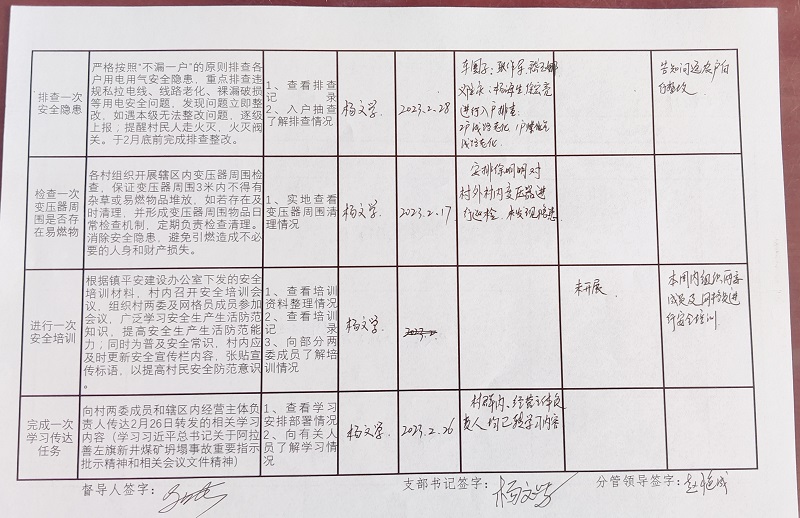 排查一次
安全隐患
严格按照“不漏一户”的原则排查各
户用电用气安全隐患，重点排查违
规私拉电线、线路老化、裸漏破损
等用电安全问题，发现问题立即整
改，如遇本级无法整改问题，逐级
上报；提醒村民人走火灭，火灭阀
关。于2月底前完成排查整改。
1、查看排查
记录
2、入户抽查
了解排查情况
杨文学
2023.2.28
进行入户排查.
线路老化.
告知问题农户自
行整改
检查一次
变压器周
围是否存
在易燃物
各村组织开展辖区内变压器周围检
查，保证变压器周围3米内不得有
杂草或易燃物品堆放，如若存在及
时清理，并形成变压器周围物品日
常检查机制，定期负责检查清理。
消除安全隐患，避免引燃造成不必
要的人身和财产损失。
1、实地查看
变压器周围清
理情况
杨文学
2023.2.17
安排徐明明对
村外村内变压器进
行巡检，未发现隐患
进行一次
安全培训
根据镇平安建设办公室下发的安全
培训材料，村内召开安全培训会
议，组织村两委及网格员成员参加
会议，广泛学习安全生产生活防范
知识，提高安全生产生活防范能
力；同时为普及安全常识，村内应
及时更新安全宣传栏内容，张贴宣
传标语，以提高村民安全防范意识
。
1、查看培训
资料整理情况
2、查看培训
记录
3、向部分两
委成员了解培
训情况
杨文学
未开展
本周内组织两委
成员及网格员进
行安全培训
完成一次
学习传达
任务
向村两委成员和辖区内经营主体负
责人传达2月26日转发的相关学习
内容（学习习近平总书记关于阿拉
善左旗新井煤矿坍塌事故重要指示
批示精神和相关会议文件精神）
1、查看学习
安排部署情况
2、向有关人
员了解学习情
况
杨文学
2023.2.26
村群内、经营主体负
责人，均已转学习内容
督导人签字：
支部书记签字：杨文学
分管领导签字：